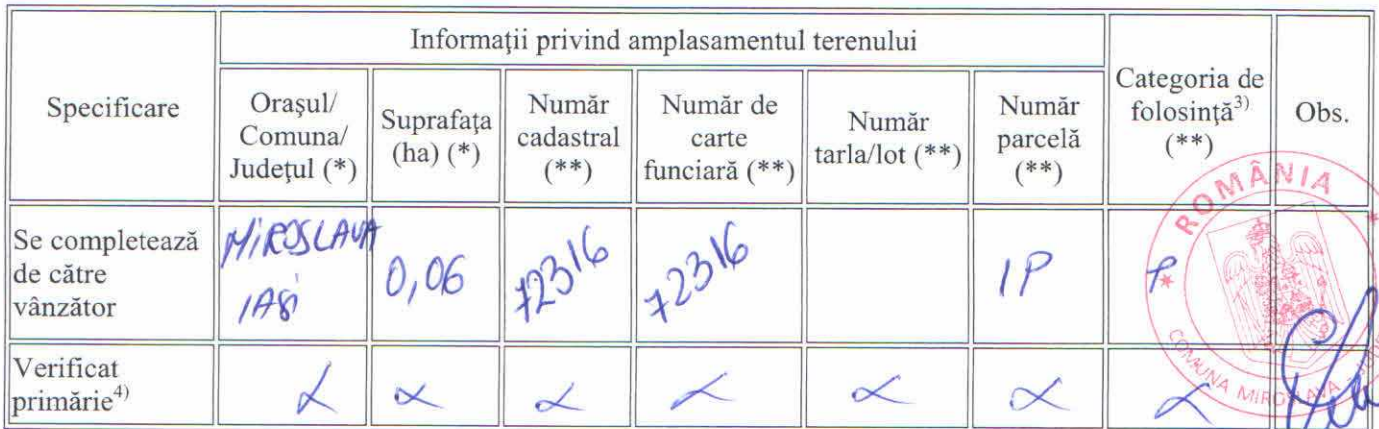 Specificare
Informaţii privind amplasamentul terenului
Categoria de
folosinţă3)
(**)
Obs.
Oraşul/
Comuna/
Judeţul (*)
Suprafaţa
(ha) (*)
Număr
cadastral
(**)
Număr de
carte
funciară (**)
Număr
tarla/lot (**)
Număr
parcelă
(**)
Se completează
de către
vânzător
MIROSLAVA
IAŞI
0,06
72316
72316
1P
P
Verificat
primărie4)
ROMÂNIA
COMUNA MIROSLAVA